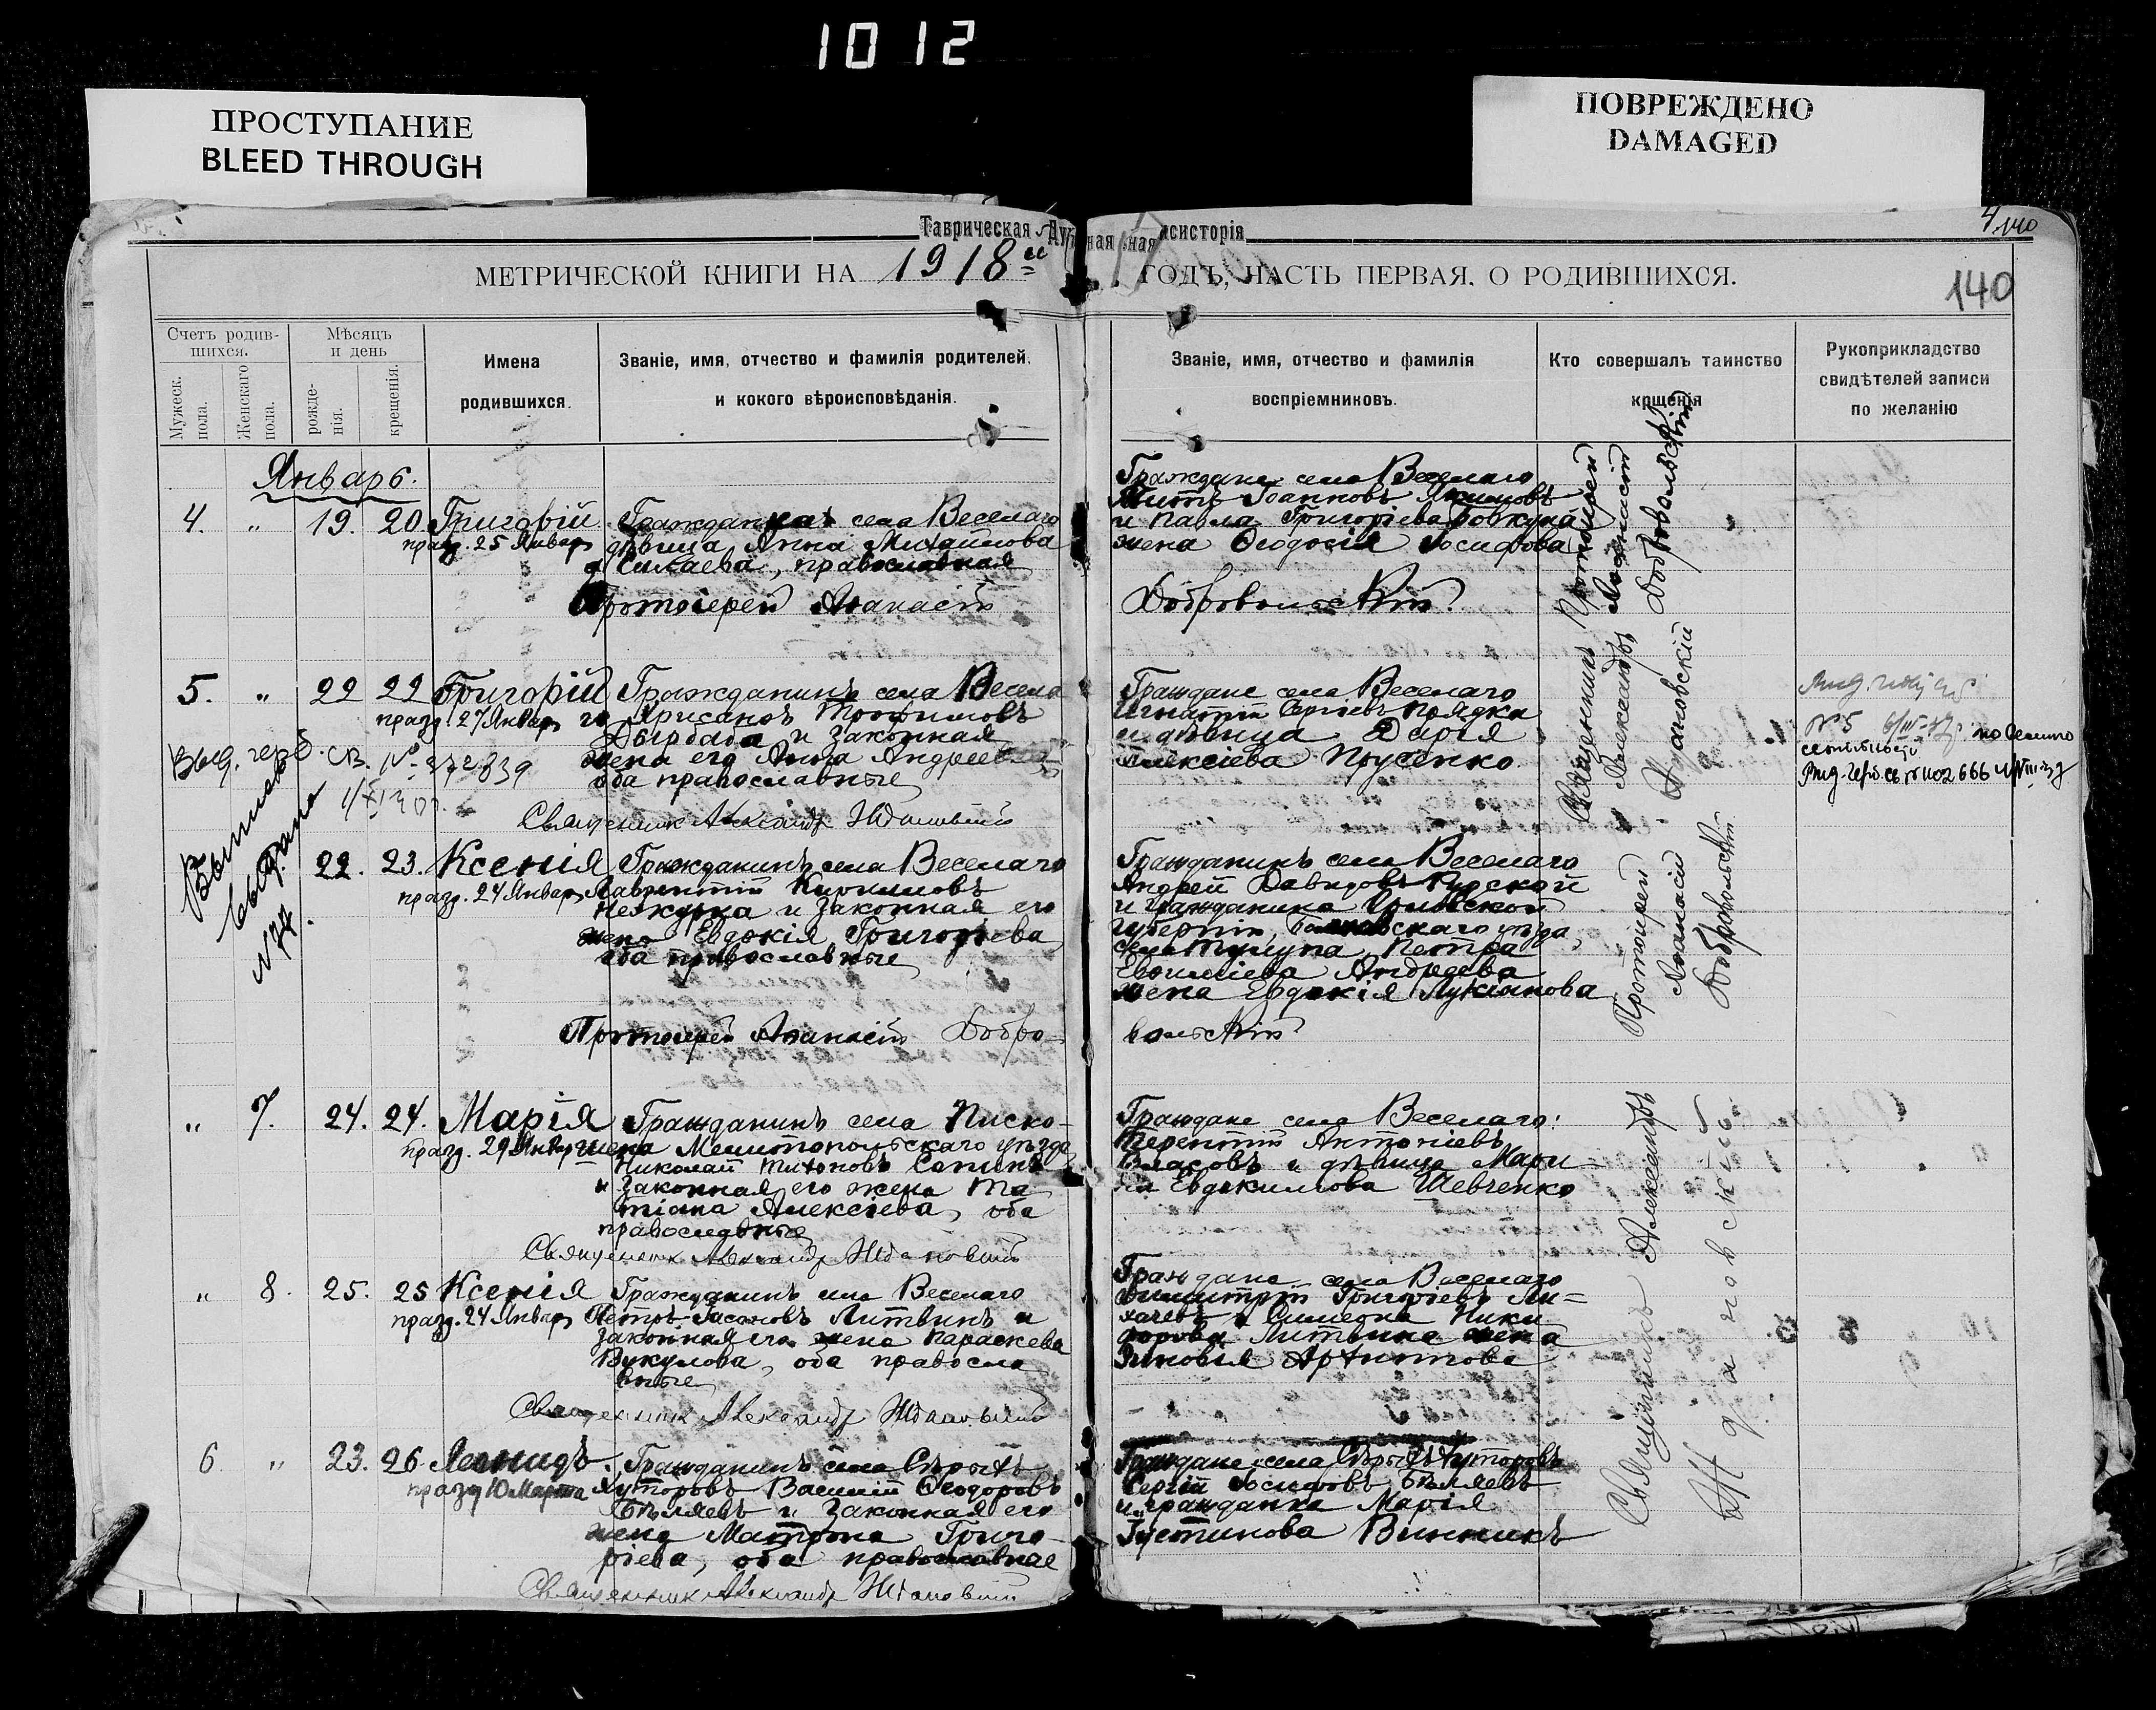 1012
ПРОСТУПАНИЕ
BLEED THROUGH
ПОВРЕЖДЕНО
DAMAGED
Таврическая
нсисторія
140
МЕТРИЧЕСКОЙ КНИГИ НА 1918й
ГОДЪ, ЧАСТЬ ПЕРВАЯ, О РОДИВШИХСЯ.
140
Счетъ родив-
шихся.
Мужеск.
пола.
Женскаго
пола.
Мѣсяцъ
и день
рожде-
нія.
крещенія.
Имена
родившихся.
Званіе, имя, отчество и фамилія родителей,
и кокого вѣроисповѣданія.
Званіе, имя, отчество и фамилія
воспріемниковъ.
Кто совершалъ таинство
крщенія
Рукоприкладство
свидѣтелей записи
по желанію
Январь.
4. " 19. 20. Григорій
празд. 25 Январ
Гражданка села Веселаго
дѣвица Анна Михаилова
Силаева, православная
Протоіерей Аѳанасій
Граждане села Веселаго
Іоанновъ
и Павла Григоріева Бовкуна
жена Ѳеодосія Іосифова
Добровольскій.
Протоіерей
Аѳанасій
Добровольскій
5. " 22 22 Григорій
празд. 27 Январ
Гражданинъ села Весела
го Хрисанѳъ Трофимовъ
Дырбаба и законная
жена его Анна Андреева
оба православные
Священник Александр Ждановский
Граждане села Веселаго
Игнатій Сергіевъ Порядка
и дѣвица Дарія
Алексіева Прусенко
Священникъ
Александръ
Ждановскій
Выд. герб. св. №
№ 5
Выпись
выдана
№ 77.
22. 23. Ксенія
празд. 24 Январ
Гражданинъ села Веселаго
Лаврентій Кирилловъ
Нежурка и законная его
жена Евдокія Григорьева
оба православные
Протоіерей Аѳанасій Добро-
Гражданинъ села Веселаго
Андрей Давидовъ Курской
и гражданина
губерніи, уѣзда,
села Тулупа Петра
Евѳиміева Андреева
жена Евдокія Лукіанова
вольскій
Протоіерей
Аѳанасій
Добровольскій
" 7. 24. 24. Марія
празд. 29 Январ
Гражданинъ села Писко-
шина Мелитопольскаго уѣзда
Николай Тихоновъ
и законная его жена Та
тіана Алексіева, оба
православные
Священник Александр Ждановский
Граждане села Веселаго:
Терентій Антоніевъ
Власовъ и дѣвица Мари
я Евдокимова Шевченко
" 8. 25. 25 Ксенія
празд. 24 Январ
Гражданинъ села Веселаго
Петръ Литвинъ и
законная его жена Параскева
Вукулова, оба правосла
вные
Священник Александр Ждановский
Граждане села Веселаго
Димитрій Григоріевъ Ли=
хачевъ и Симеона Ники
форова Литвина жена
Зиновія Архиппова
Священникъ Александръ
Ждановскій
6 " 23. 26. Леонидъ
празд 10 Марта
Гражданинъ села Сѣрыхъ
Хуторовъ Василій Ѳеодоровъ
Бѣляевъ и законная его
жена Матрона Григо-
ріева, оба православные
Священник Александр Ждановский
Граждане села Сѣрыхъ Хуторовъ
Сергій Іосифовъ Бѣляевъ
и гражданка Марія
Іустинова Винникъ